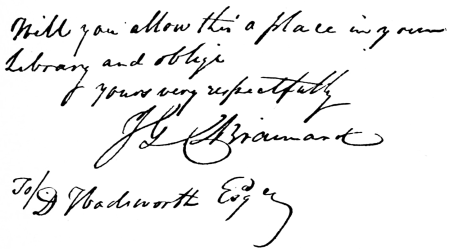 Will you allow this a place in your
Library and oblige
yours very respectfully
J G C Brainard
To/ D Wadsworth Esqr